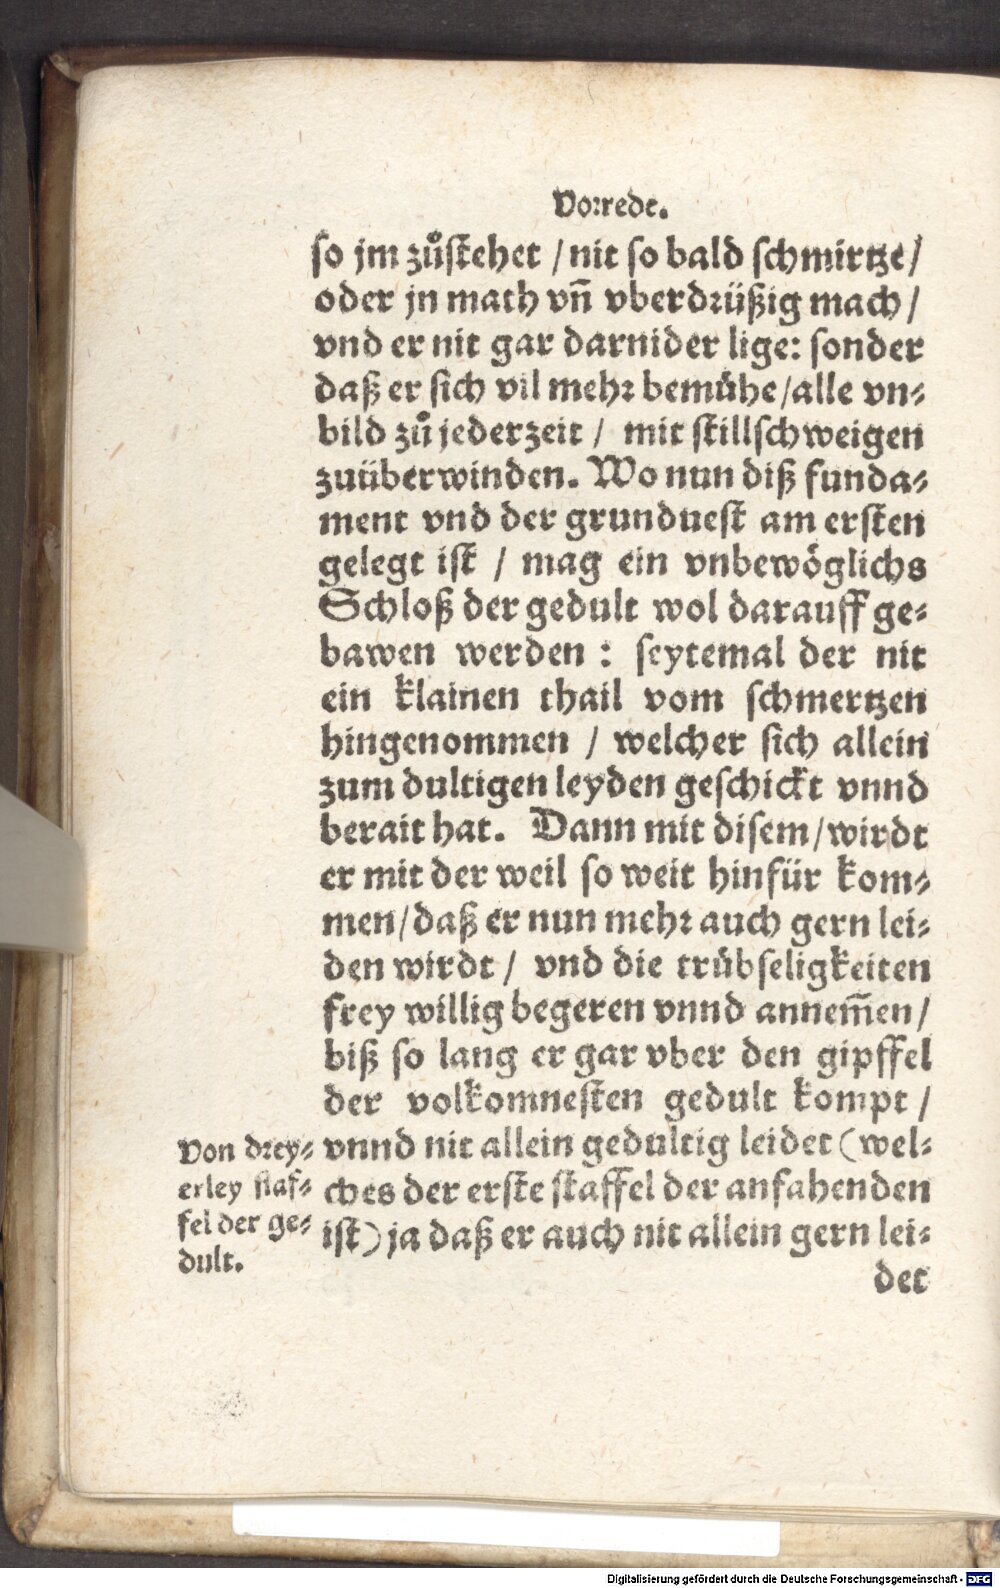 Vorrede.
so jm zůstehet / nit so bald schmirtze /
oder jn math vñ vberdrüßig mach /
vnd er nit gar darnider lige: sonder
daß er sich vil mehr bemühe / alle vn-
bild zů jederzeit / mit stillschweigen
zuüberwinden. Wo nun diß funda-
ment vnd der grunduest am ersten
gelegt ist / mag ein vnbewöglichs
Schloß der gedult wol darauff ge-
bawen werden : seytemal der nit
ein klainen thail vom schmertzen
hingenommen / welcher sich allein
zum dultigen leyden geschickt vnnd
berait hat. Dann mit disem / wirdt
er mit der weil so weit hinfür kom-
men / daß er nun mehr auch gern lei-
den wirdt / vnd die trübseligkeiten
frey willig begeren vnnd annem̃en /
biß so lang er gar vber den gipffel
der volkomnesten gedult kompt /
vnnd nit allein gedultig leidet (wel-
ches der erste staffel der anfahenden
ist) ja daß er auch nit allein gern lei-
det
Von drey-
erley staf-
fel der ge-
dult.
Digitalisierung gefördert durch die Deutsche Forschungsgemeinschaft - DFG